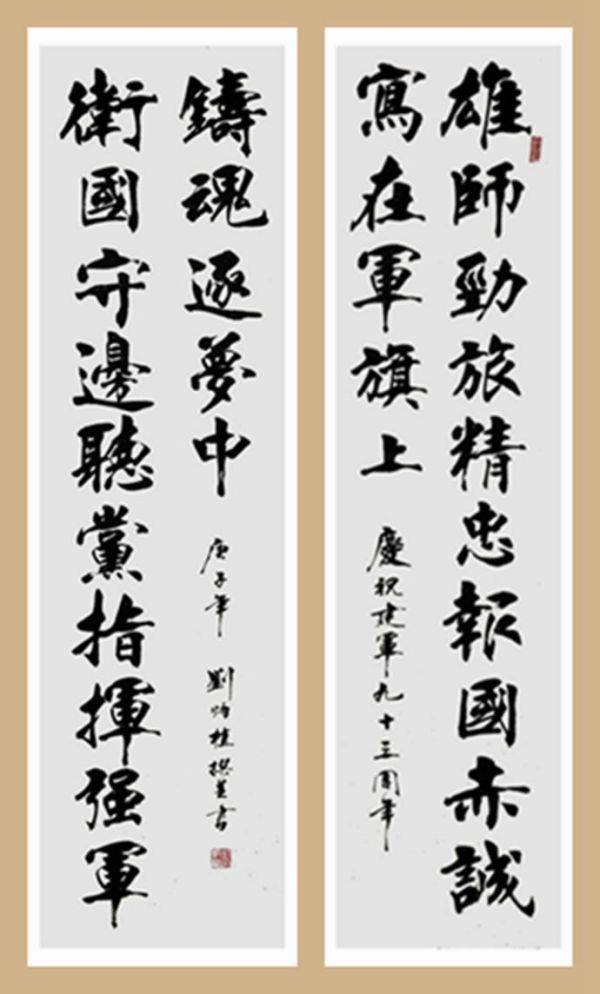 雄師勁旅精忠報國赤誠
寫在軍旗上
慶祝建軍九十三周年
衛國守邊聽黨指揮强軍
鑄魂逐夢中
庚子年 劉桂撰並書